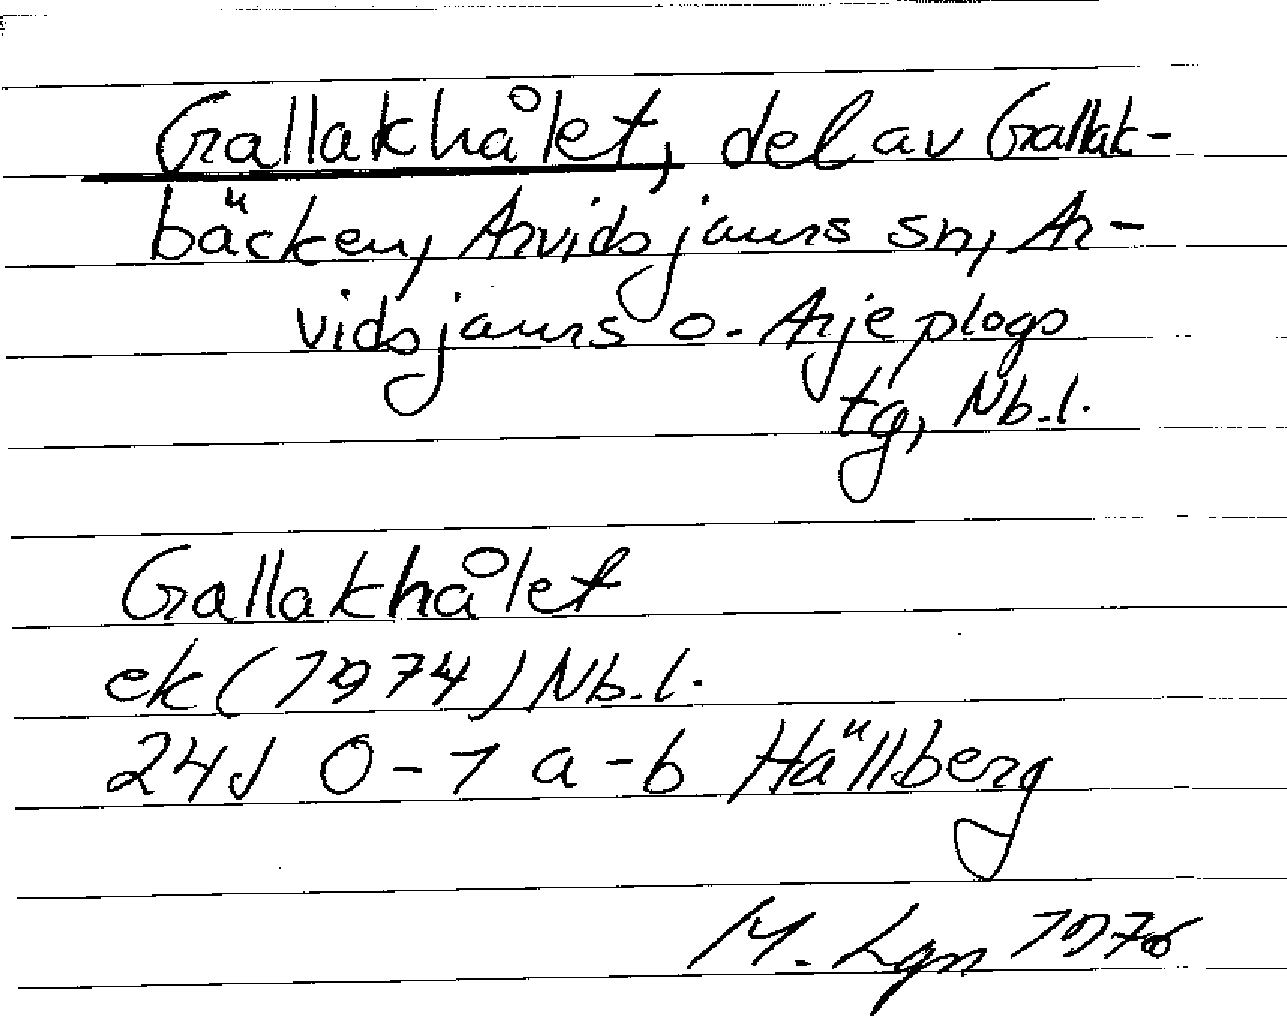 Gallakhålet, del av Gallak-
bäcken, Arvidsjaurs sn, Ar-
vidsjaurs o. Arjeplogs
tg, Nb.l.
Gallakhålet
ek (1974) Nb.l.
24J 0-1 a-b Hällberg
M. Lgn 1976